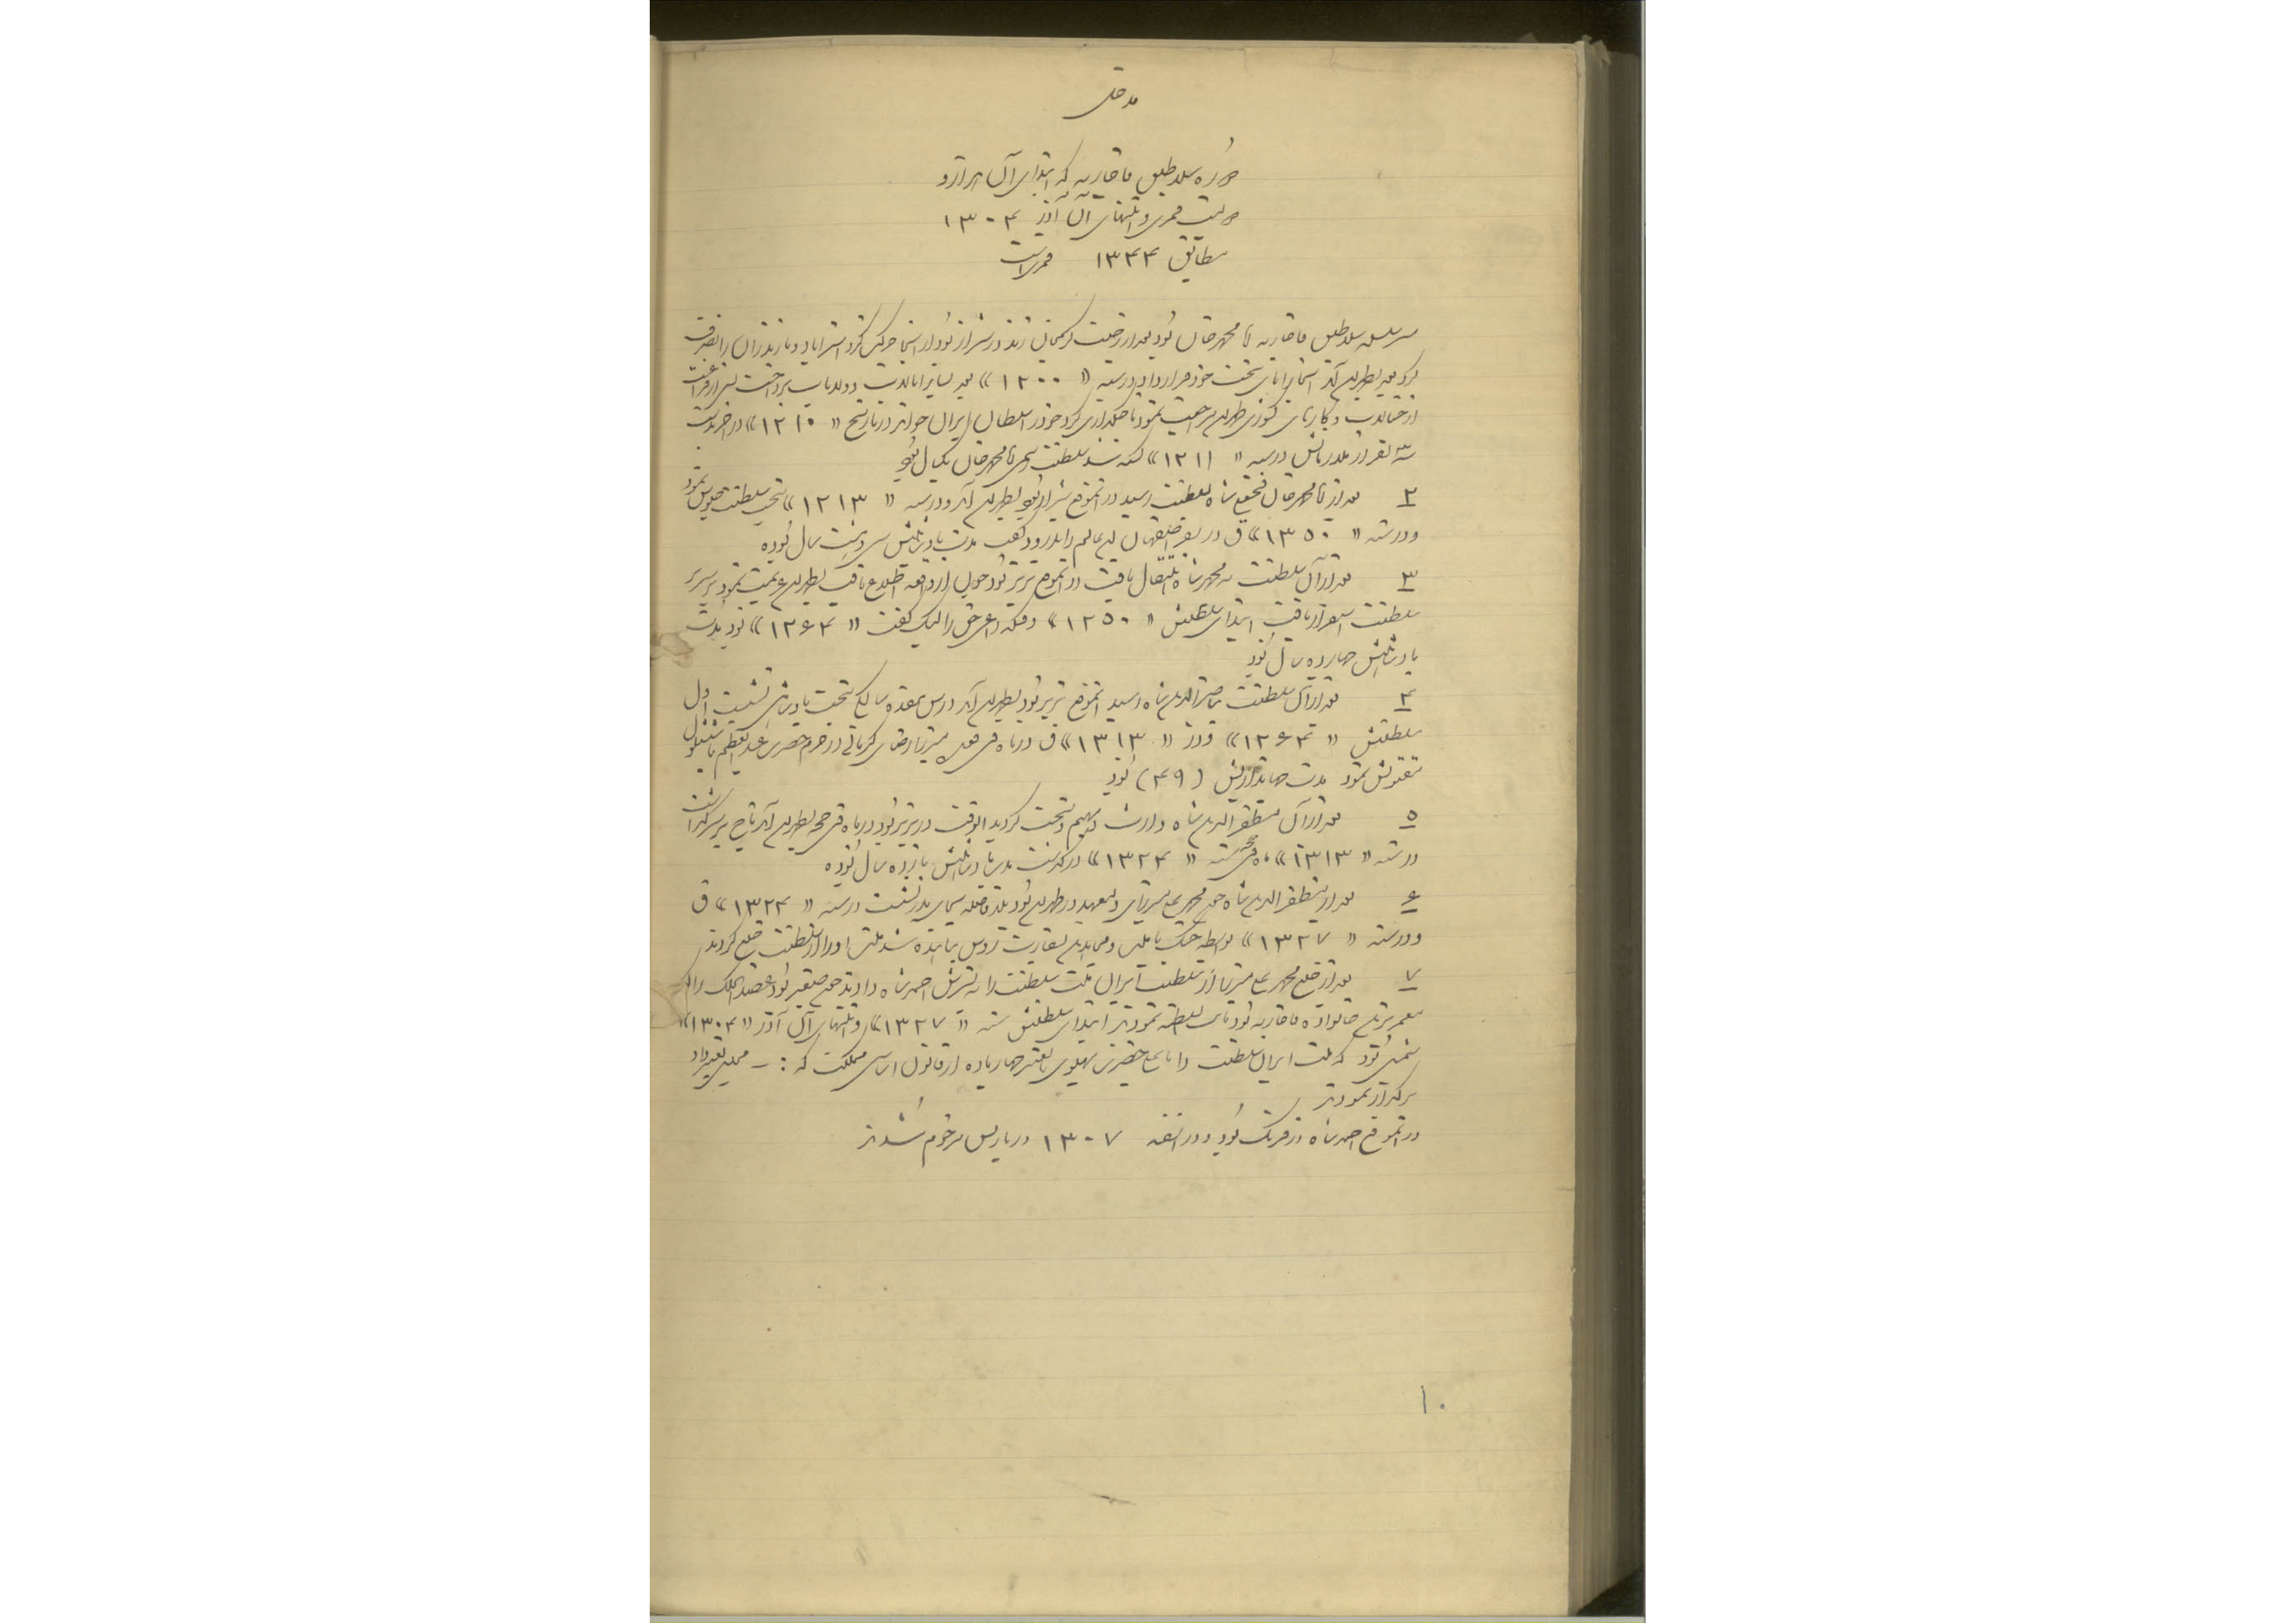 مدخل
دوره سلاطین قاجاریه که ابتدای آن هزار و
دویست قمری و انتهای آن آذر ۱۳۰۴
مطابق ۱۳۴۴ قمری است
سرسلسله سلاطین قاجاریه آقا محمد خان بود بعد از رحلت کریمخان زند در شیراز بود از آنجا حرکت کرد استراباد و مازندران را تصرف
کرد بعد بطهران آمد آنجا را پای تخت خود قرار داد در سنه « ۱۲۰۰ » بعد بسایر ایالات و ولایات پرداخت پس از فراغت
از و کارهای کشوری بطهران مراجعت نمود تاجگذاری کرد خود را سلطان ایران خواند در تاریخ « ۱۲۱۰ » در
سه نفر از ملازمانش در سنه « ۱۲۱۱ » کشته شد سلطنت رسمی آقا محمد خان یکسال بود
۲ بعد از آقا محمد خان فتحعلیشاه بسلطنت رسید در آنموقع شیراز بود بطهران آمد و در سنه « ۱۲۱۳ » بتخت سلطنت جلوس نمود
و در سنه « ۱۳۵۰ » ق در سفر اصفهان این عالم را بدرود گفت مدت پادشاهیش سی و هشت سال بوده
۳ بعد از آن سلطنت به محمد شاه انتقال یافت در آنموقع تبریز بود چون از واقعه اطلاع یافت بطهران عزیمت نمود بر سریر
سلطنت استقرار یافت ابتدای سلطنتش « ۱۲۵۰ » وقتیکه داعی حق را لبیک گفت « ۱۲۶۴ » بود مدت
پادشاهیش چهارده سال بود
۴ بعد از آن سلطنت بناصرالدین شاه رسید آنموقع تبریز بود بطهران آمد در سن هفده سالگی بتخت پادشاهی نشست اول
سلطنتش « ۱۲۶۴ » و در « ۱۳۱۳ » ق در ماه ذی قعده میرزا رضای کرمانی در حرم حضرت عبدالعظیم با ششلول
مقتولش نمود مدت جهانداریش (۴۹) بود
۵ بعد از آن مظفرالدین شاه وارث دیهیم و تخت گردید آنوقت در تبریز بود در ماه ذی حجه بطهران آمد تاج بر سر گذاشت
در سنه « ۱۳۱۳ » ماه ذیحجه سنه « ۱۳۲۴ » درگذشت مدت پادشاهیش یازده سال بوده
۶ بعد از مظفرالدین شاه چون محمد علی میرزای ولیعهد در طهران بود بلافاصله بجای پدر نشست در سنه « ۱۳۲۴ » ق
و در سنه « ۱۳۲۷ » بواسطه جنگ با ملت و مجاهدین بسفارت روس پناهنده شد ملت او را از سلطنت خلع کردند
۷ بعد از خلع محمد علی میرزا از سلطنت ایران ملت سلطنت را به پسرش احمد شاه دادند چون صغیر بود عضدالملک را که
معمرترین خانواده قاجاریه بود نایب السلطنه نمودند ابتدای سلطنتش سنه « ۱۳۲۷ » و انتهای آن آذر « ۱۳۰۴ »
شمسی بود که ملت ایران سلطنت را باعلیحضرت پهلوی با تغییر چهار ماده از قانون اساسی مملکت که : ـ
برگذار نمودند
در آنموقع احمد شاه در فرنگ بود و در ۱۳۰۷ در پاریس مرحوم شدند
۱۰